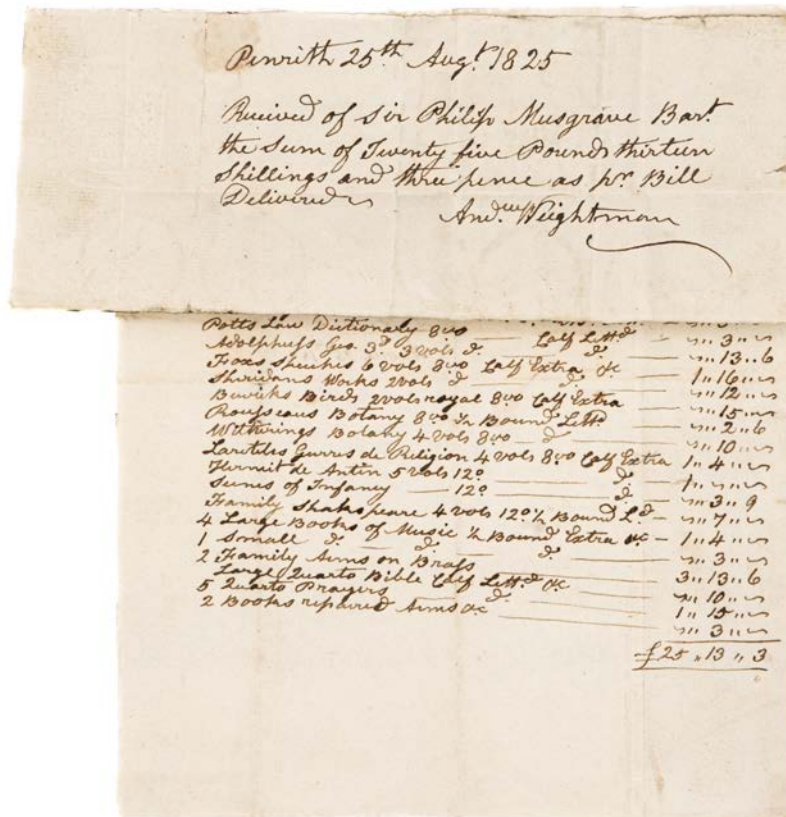 Penrith 25th Augt. 1825
Received of Sir Philip Musgrave Bart.
the Sum of Twenty five Pounds thirteen
Shillings and three pence as pr. Bill
Delivered
Andw. Weightman
Potts Law Dictionary 8vo — Calf Lettd. — " 3 "
Adolphus's Geo. 3d. 3 vols do. do. — " 13 " 6
Foxs Speeches 6 vols 8vo Calf Extra &c — 1 " 16 "
Sheridans Works 2 vols do. — do. — " 12 "
Bewicks Birds 2 vols royal 8vo Calf Extra — " 15 "
Rousseaus Botany 8vo ½ Bound Lettd. — " 2 " 6
Witherings Botany 4 vols 8vo — do. — " 10 "
Laretiles Gurres de Religion 4 vols 8vo Calf Extra 1 " 4 "
Hermit de Antin 5 vols 12o. do. — 1 " "
Scenes of Infancy — 12o. — do. — " 3 " 9
Family Shakespeare 4 vols 12o. ½ Bound Ld. — " 7 "
4 Large Books of Music ½ Bound Extra &c — 1 " 4 "
1 Small do. — do. — do. — " 3 "
2 Family Arms on Brass — 3 " 13 " 6
Large Quarto Bible Calf Lettd. &c — " 10 "
5 Quarto Prayers do. — 1 " 15 "
2 Books repaired Arms &c — " 3 "
£25 " 13 " 3